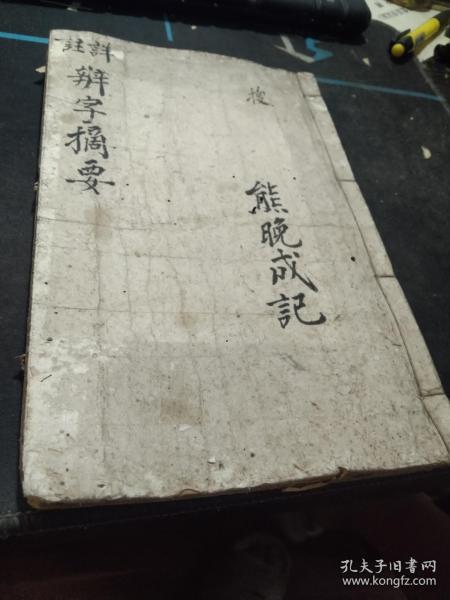 詳註
辨字摘要
搜
熊晚成記
孔夫子旧书网
www.kongfz.com